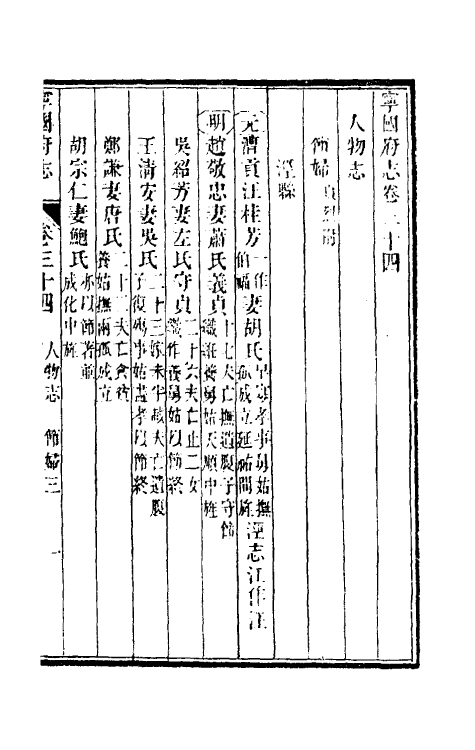 寧國府志卷三十四
人物志
節婦 貞烈附
涇縣
元漕貢江桂芳一作伯福妻胡氏早寡孝事舅姑撫孤成立延祐間旌涇志江作汪
明趙敬忠妻蕭氏義貞十七夫亡撫遺腹子守節織紝養舅姑天順中旌
吳紹芳妻左氏守貞二十六夫亡止二女織作養舅姑以節終
王清安妻吳氏二十三嫁未半載夫亡遺腹子復殤事姑盡孝以節終
鄭謙妻唐氏二十二夫亡食貧養姑撫兩孤成立
胡宗仁妻鮑氏亦以節著並成化中旌
寧國府志 卷三十四 人物志 節婦三 一